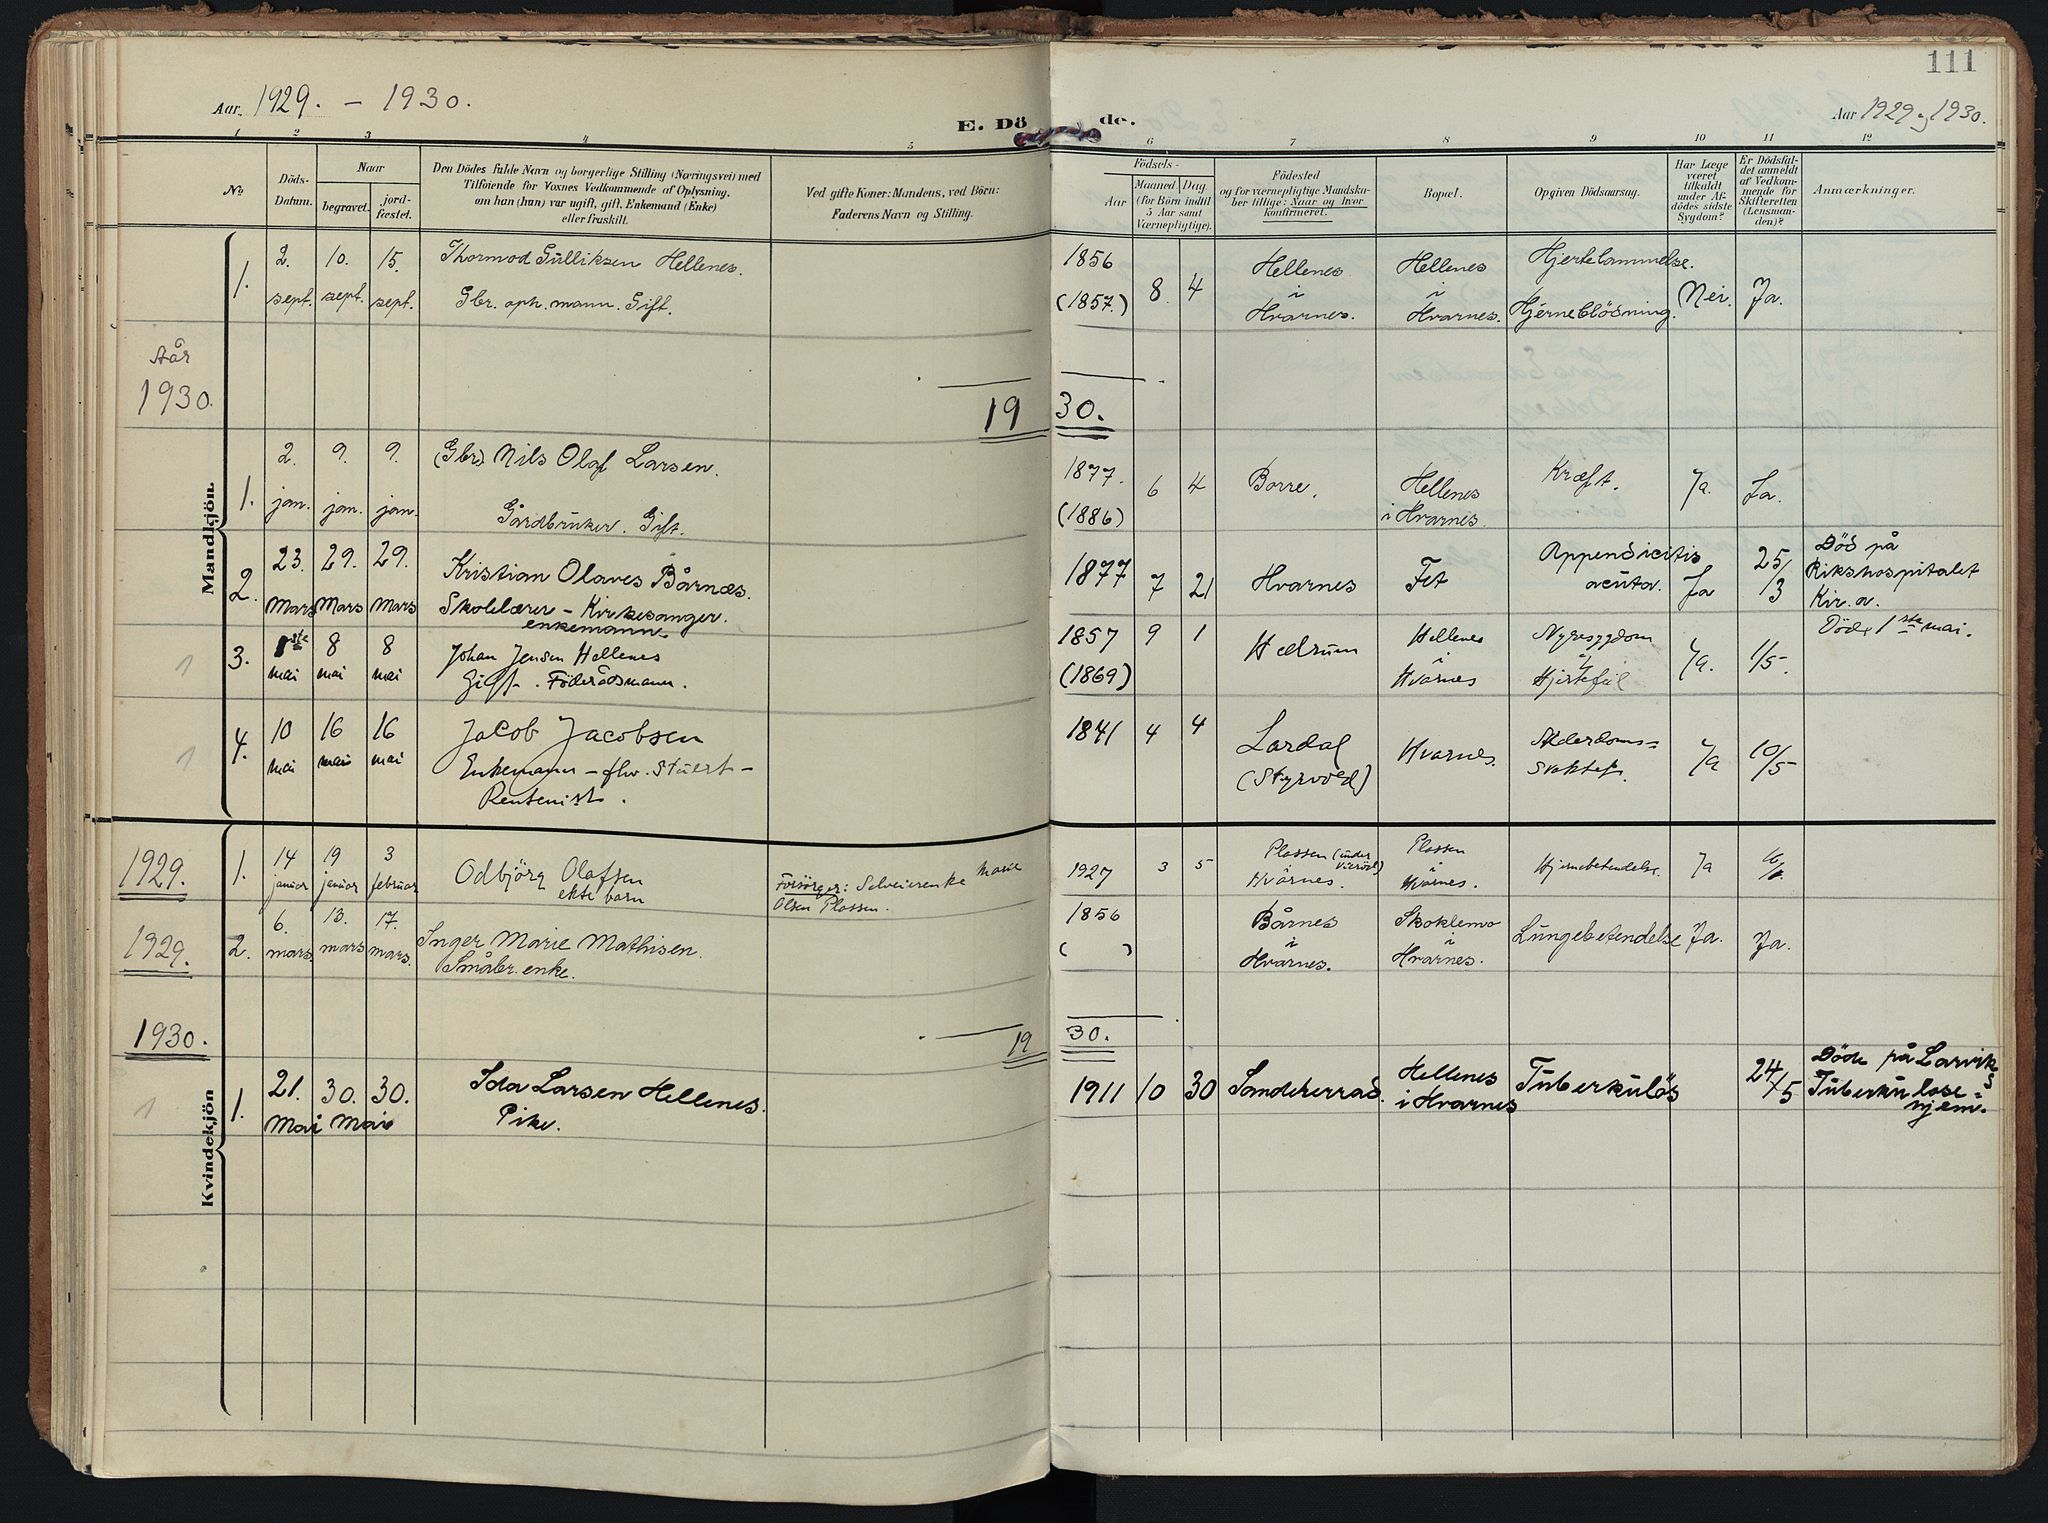 111
Aar 1929. – 1930.
E. Dö de.
Aar 1929 og 1930.
1 2 3 4 5 6 7 8 9 10 11 12
No
Döds-
Datum.
Naar
begravet.
jord-
fæstet.
Den Dödes fulde Navn og borgerlige Stilling (Næringsvei) med
Tilföiende for Voxnes Vedkommende af Oplysning,
om han (hun) var ugift, gift, Enkemand (Enke)
eller fraskilt.
Ved gifte Koner: Mandens, ved Börn:
Faderens Navn og Stilling.
Födsels-
Aar
Maaned Dag
(for Börn indtil
5 Aar samt
Værnepligtige).
Födested
og for værnepligtige Mandska-
ber tillige: Naar og hvor
konfirmeret.
Bopæl.
Opgiven Dödsaarsag.
Har Læge
været
tilkaldt
under Af-
dödes sidste
Sygdom?
Er Dödsfal-
det anmeldt
af Vedkom-
mende for
Skifteretten
(Lensman-
den)?
Anmærkninger.
Mandkjön.
1.
2. sept.
10. sept.
15. sept.
Thormod Gulliksen Hellenes.
Gbr. oph. mann. Gift.
1856
(1857.)
8 4
Hellenes
i
Hvarnes.
Hellenes
i
Hvarnes.
Hjertelammelse.
Hjerneblödning.
Nei.
Ja.
Aar
1930.
19 30.
1.
2. jan.
9. jan.
9. jan.
(Gbr.) Nils Olaf Larsen.
Gårdbruker. Gift.
1877.
(1886)
6 4
Borre.
Hellenes
i Hvarnes.
Kræft.
Ja.
Ja.
2.
23. Mars
29. Mars
29. Mars
Kristian Olaves Bårnæs.
Skolelærer – Kirkesanger.
enkemann
1877
7 21
Hvarnes
Fet
Appendicitis
acuta.
Ja
25/3
Död på
Rikshospitalet
Kir. a.
1
3.
1ste mai
8 mai
8 mai
Johan Jensen Hellenes
Gift. Föderådsmann.
1857
(1869)
9 1
Hedrum
Hellenes
i
Hvarnes
Nyresygdom
og
Hjertefeil
Ja.
1/5-
Död 1ste mai.
1
4.
10 mai
16 mai
16 mai
Jacob Jacobsen
Enkemann – fhv. Stuert –
Rentenist.
1841
4 4
Lardal
(Styrvold)
Hvarnes.
Alderdoms=
svakhet.
Ja
10/5-
Kvindekjön
1929.
1.
14 januar
19 januar
3 februar
Odbjörg Olafsen
ekte barn
Forsörger: Selveierenke Marie
Olsen Plassen.
1927
3 5
Plassen (under
Hvarnes.
Plassen
i
Hvarnes.
Hjernebetendelse.
Ja
1929.
2.
6. mars.
13. mars
17. mars.
Inger Marie Mathisen.
Småbr. enke.
1856
( )
Bårnes
i
Hvarnes.
Skoklemo
i
Hvarnes.
Lungebetendelse
Ja.
Ja.
1930.
19 30.
1
1.
21. Mai
30. Mai
30.
Ida Larsen Hellenes.
Pike.
1911
10 30
Sandeherrad.
Hellenes
i Hvarnes
Tuberkulös
24/5
Döde på Larviks
Tuberkulose=
hjem.